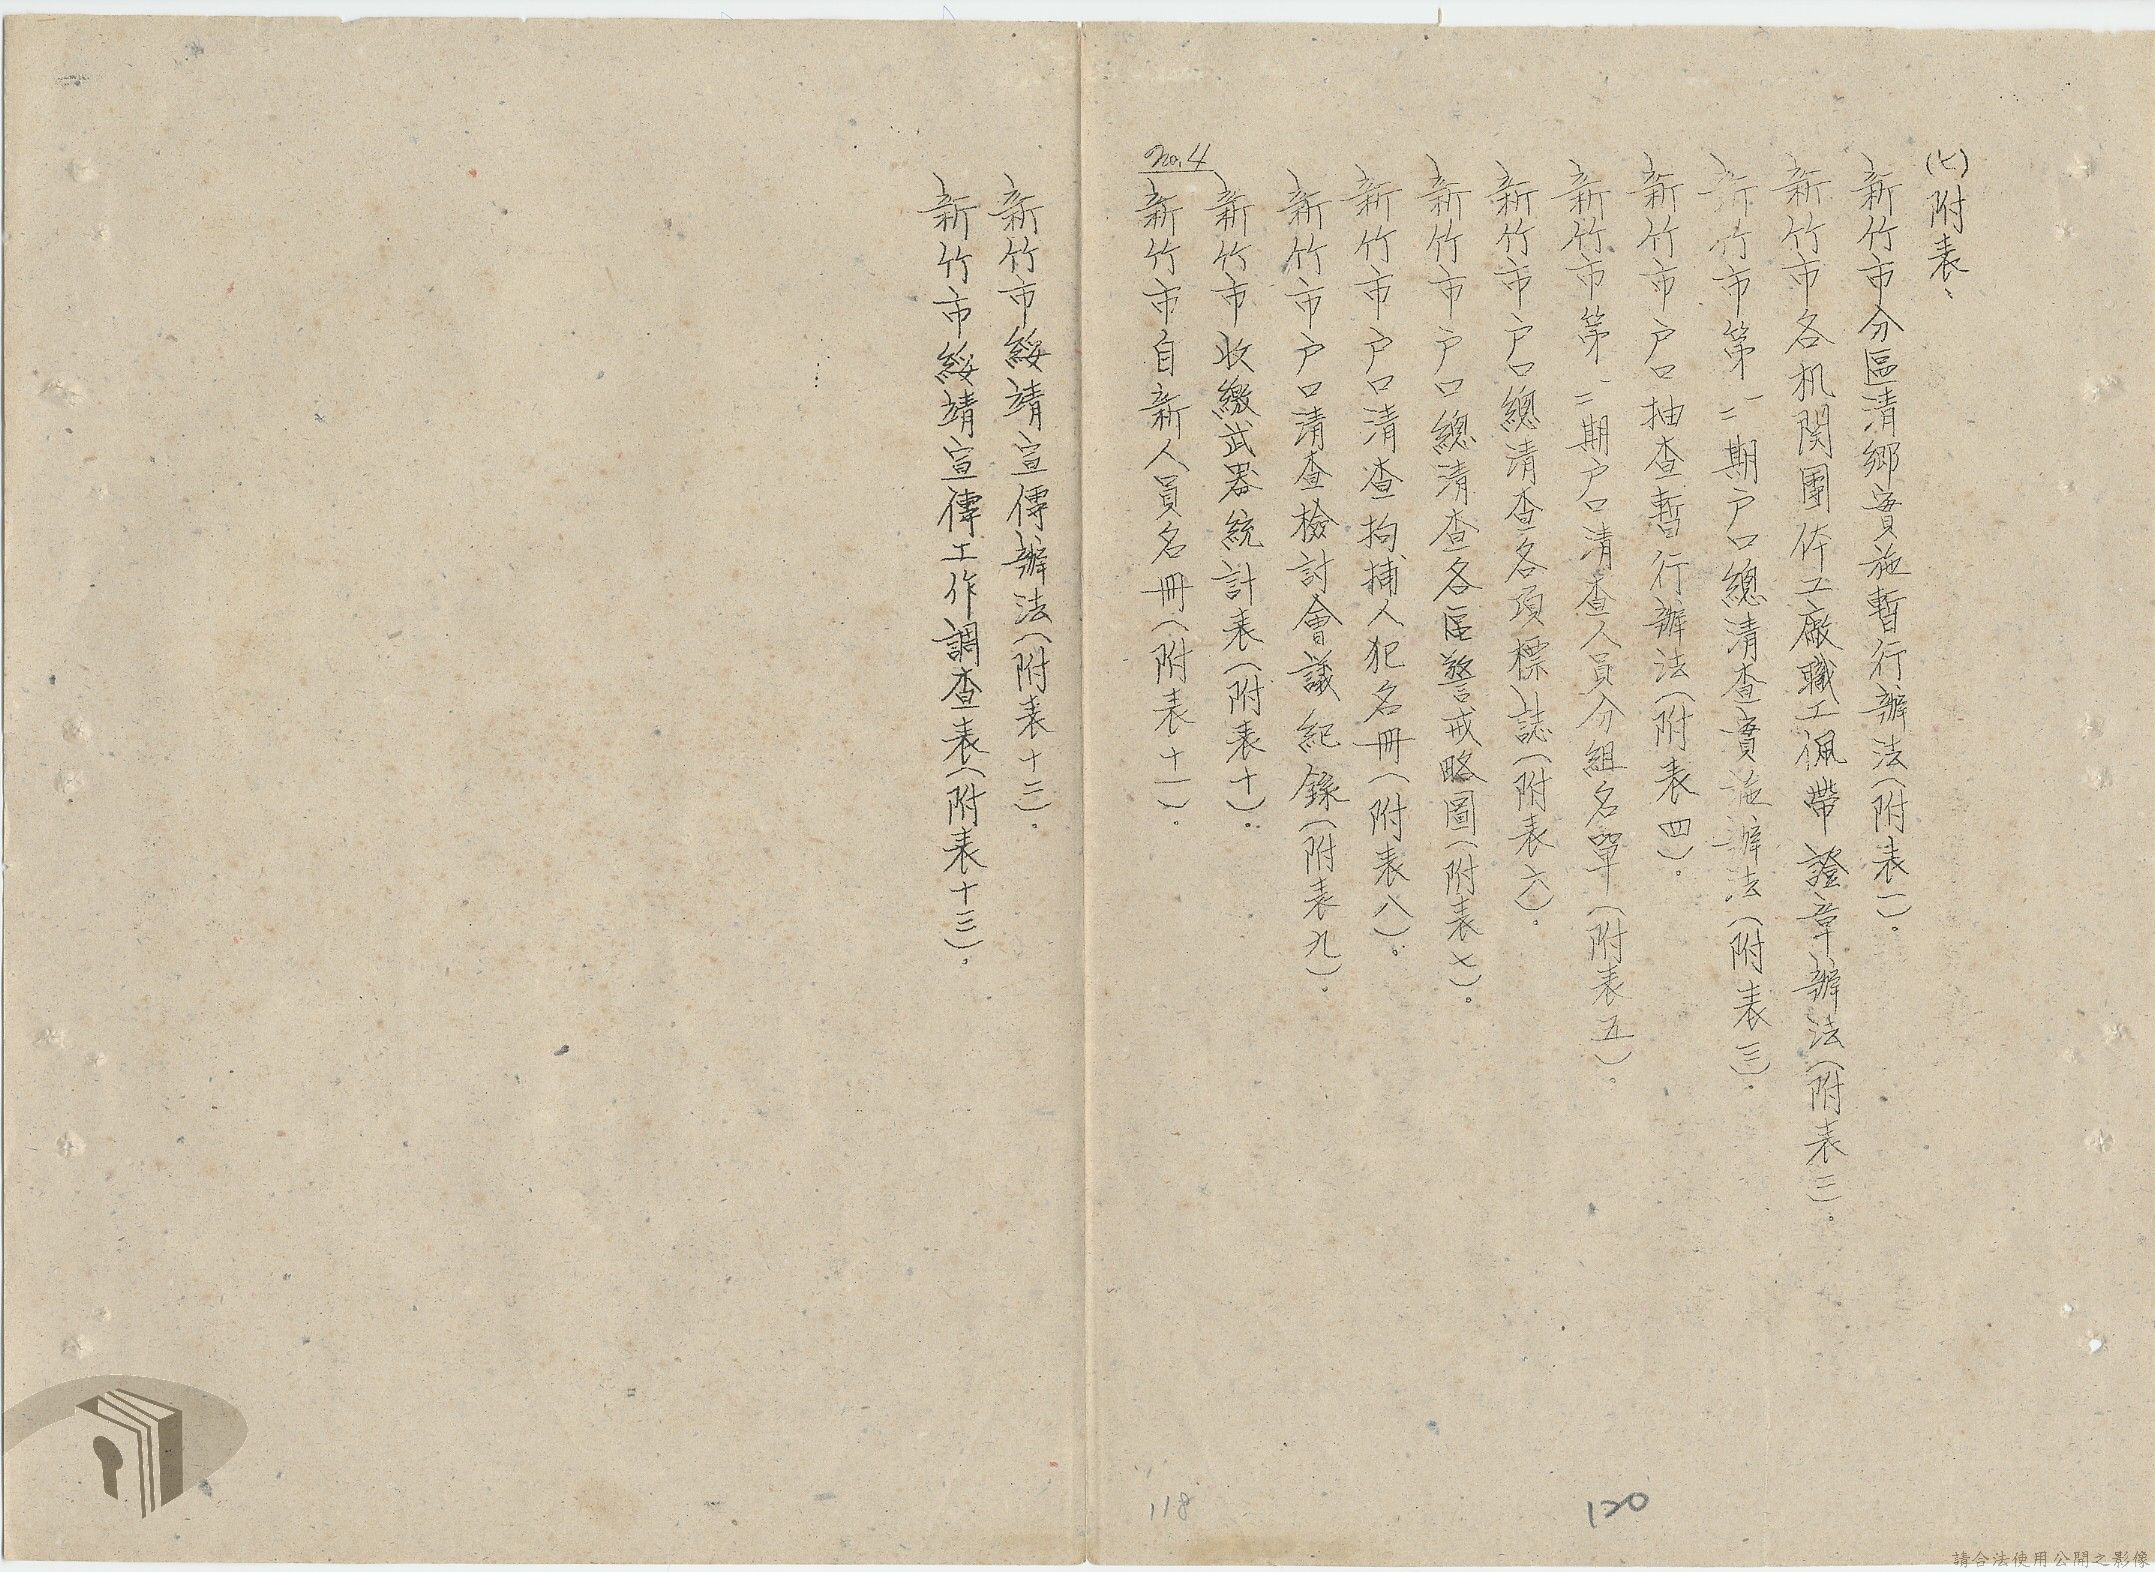 (七)附表、
新竹市分區清鄉實施暫行辦法(附表一)。
新竹市各机関團体工廠職工佩帶證章辦法(附表二)。
新竹市第一二期户口總清查實施辦法(附表三)。
新竹市户口抽查暫行辦法(附表四)。
新竹市第一二期户口清查人員分組名單(附表五)。
新竹市户口總清查各項標誌(附表六)。
新竹市户口總清查各區警戒略圖(附表七)。
新竹市户口清查拘捕人犯名冊(附表八)。
新竹市户口清查檢討會議紀錄(附表九)。
新竹市收繳武器統計表(附表十)。
No.4
新竹市自新人員名冊(附表十一)。
新竹市綏靖宣傳辦法(附表十二)。
新竹市綏靖宣傳工作調查表(附表十三)。
118
120
請合法使用公開之影像